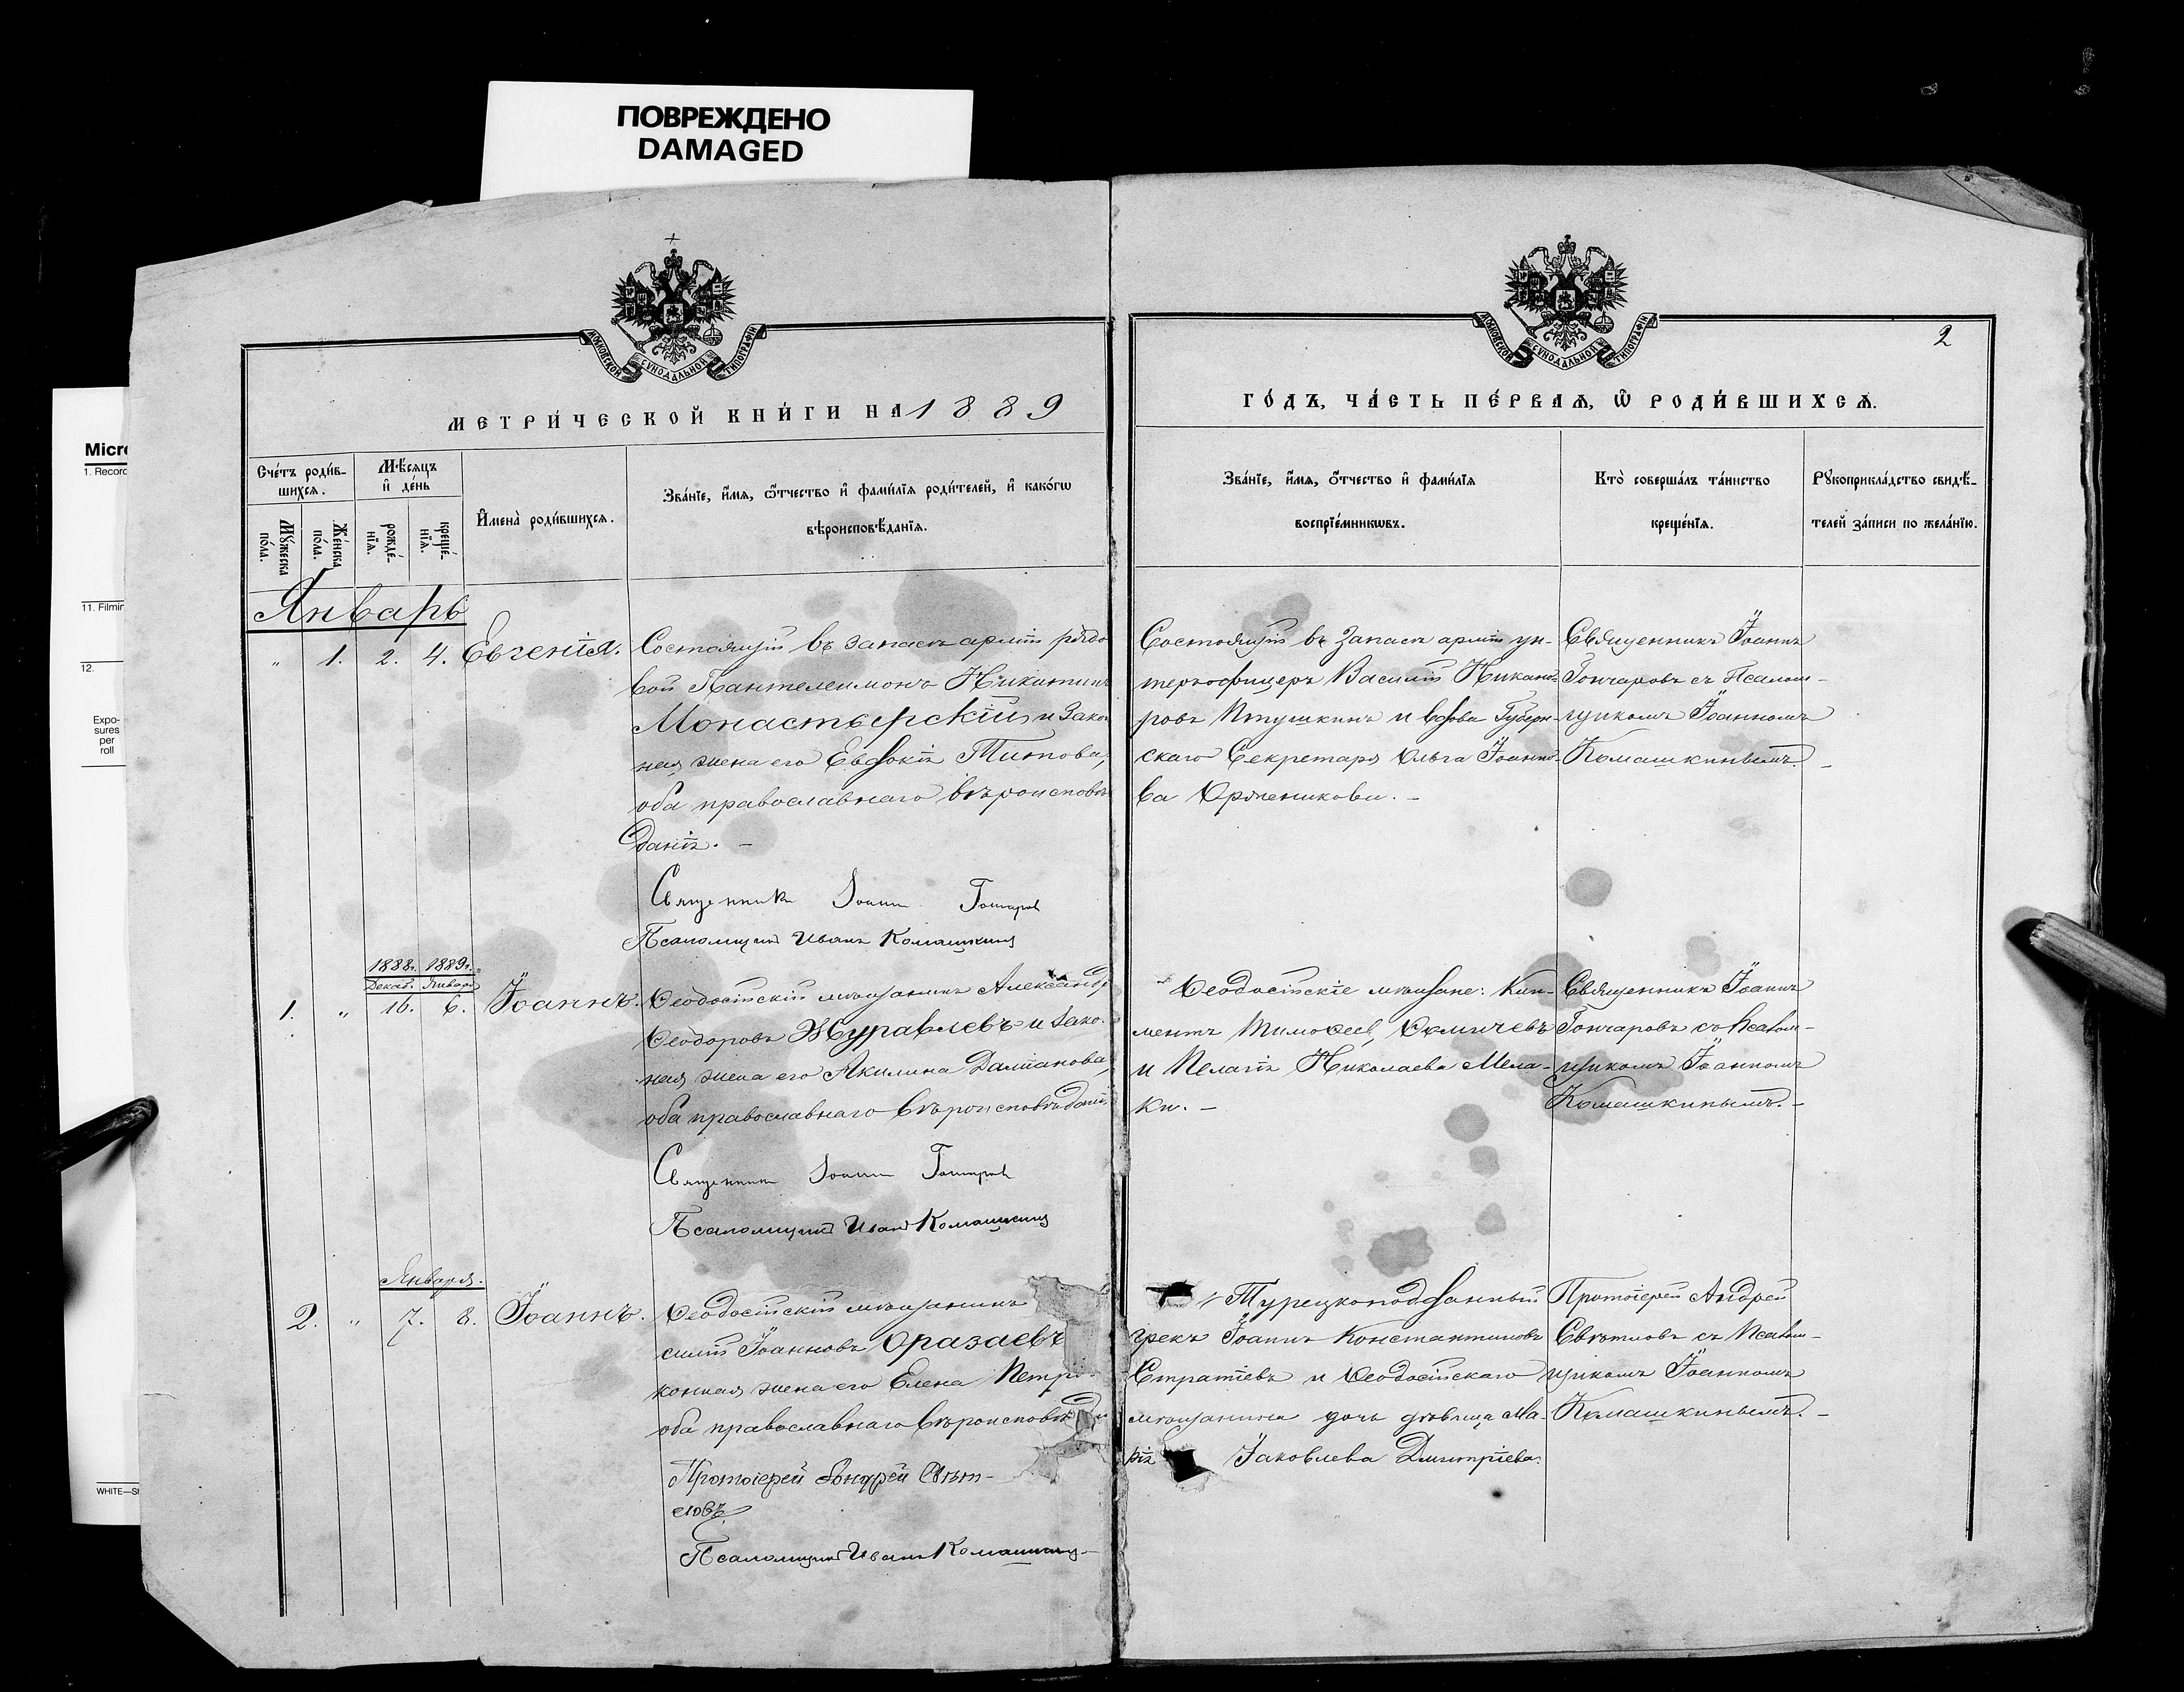 ПОВРЕЖДЕНО
DAMAGED
Micro
1. Record
11. Filmin
12.
Expo-
sures
per
roll
WHITE—S
МОСКОВСКОЙ СѴНОДАЛЬНОЙ ТИПОГРАФІИ
МЕТРИ́ЧЕСКОЙ КНИ́ГИ НА 1889
Сче́тъ роди́в-
шихсѧ.
Мѣ́сѧцъ
и҆ де́нь
Мꙋ́жеска
по́ла.
Же́нска
по́ла.
рожде́-
нїѧ.
креще́-
нїѧ.
И҆мена̀ роди́вшихсѧ.
Зва́нїе, и҆́мѧ, ѻ҆́тчество и҆ фами́лїѧ роди́телей, и҆ како́гѡ
вѣроисповѣ́данїѧ.
Январь
" 1. 2. 4. Евгенія.
Состоящій въ запасѣ арміи рядо
вой Пантелеимонъ Никитинъ
Монастырскій и закон
ная жена его Евдокія Титова,
оба православнаго вѣроисповѣ
данія. –
Священникъ Іоаннъ Гончаровъ
Псаломщикъ Иванъ Комашкинъ
1888г. 1889г.
Декаб. Января
1. " 16. 6. Іоаннъ.
Ѳеодосійскій мѣщанинъ Александръ
Ѳеодоровъ Журавлевъ и зако-
ная жена его Акилина Даміанова,
оба православнаго вѣроисповѣданія
Священникъ Іоаннъ Гончаровъ
Псаломщикъ Иванъ Комашкинъ
Января.
2. " 7. 8. Іоаннъ.
Ѳеодосійскій мѣщанинъ
силій Іоанновъ Оразаевъ
конная жена его Елена Петро
оба православнаго вѣроисповѣд
Протоіерей Андрей Свѣт-
ловъ
Псаломщикъ Иванъ Комашкинъ
МОСКОВСКОЙ СѴНОДАЛЬНОЙ ТИПОГРАФІИ
2
ГО́ДЪ, ЧА́СТЬ ПЕ́РВАѦ, Ѡ҆ РОДИ́ВШИХСѦ.
Зва́нїе, и҆́мѧ, ѻ҆́тчество и҆ фами́лїѧ
воспрїе́мникѡвъ.
Кто̀ соверша́лъ та́инство
креще́нїѧ.
Рꙋкоприкла́дство свидѣ́-
телей за́писи по жела́нїю.
Состоящій въ запасѣ арміи ун-
теръ-офицеръ Василій Никано-
ровъ Птушкинъ и вдова Губерн-
скаго Секретаря Ольга Іоанно-
ва
Священникъ Іоаннъ
Гончаровъ съ Псалом-
щикомъ Іоанномъ
Комашкинымъ. –
Ѳеодосійскіе мѣщане: Кли-
ментъ Тимоѳеев
и Пелагія Николаева Мела-
ки. –
Священникъ Іоаннъ
Гончаровъ съ Псалом-
щикомъ Іоанномъ
Комашкинымъ. –
Турецкоподданный
грекъ Іоаннъ Константиновъ
Стратіевъ и Ѳеодосійскаго
мѣщанина дочь дѣвица Ма-
рія Іаковлева Дмитріева.
Протоіерей Андрей
Свѣтловъ съ Псалом-
щикомъ Іоанномъ
Комашкинымъ. –